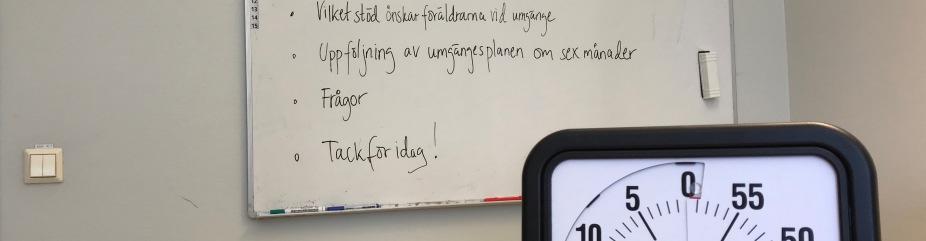 Vilket stöd önskar föräldrarna vid umgänge
Uppföljning av umgängesplanen om sex månader
Frågor
Tack för idag!
5 0 55
10 50